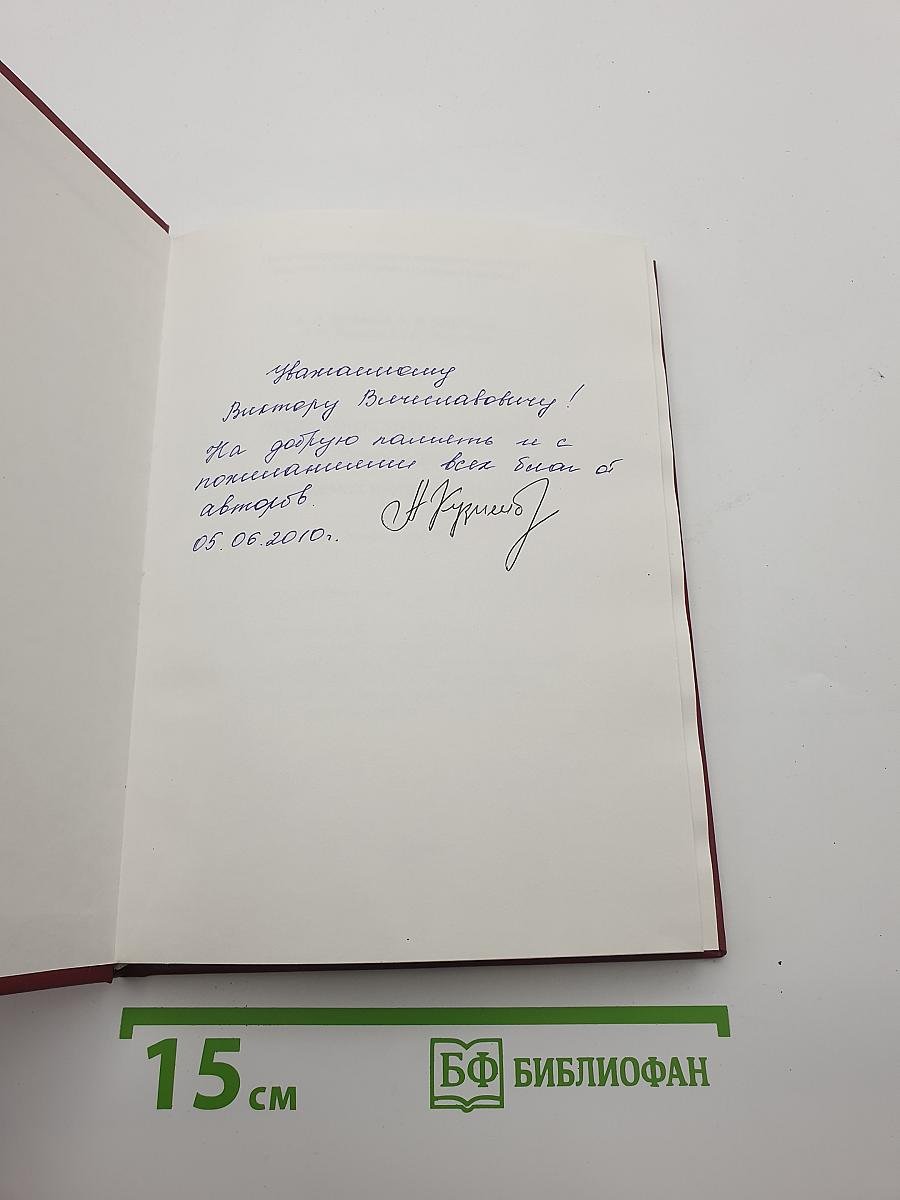 Уважаемому
Виктору Вячеславовичу!
На добрую память и с
пожеланиями всех благ от
авторов.
05.06.2010г.
АКузнецов
15 см
БФ БИБЛИОФАН